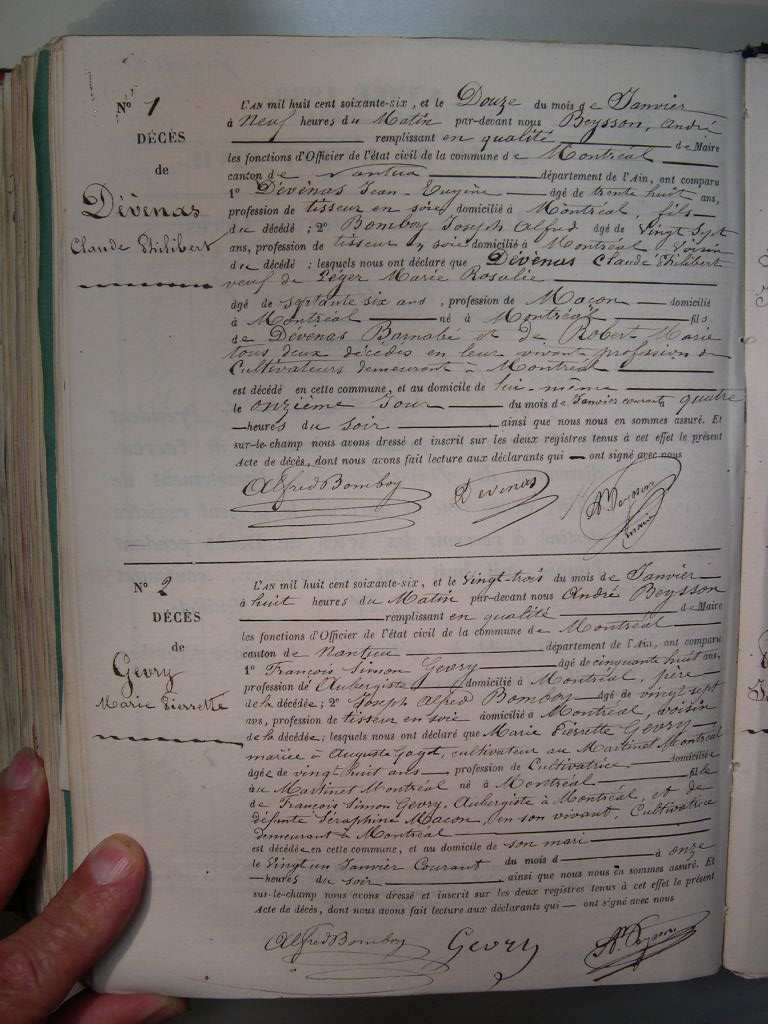 N° 1
DÉCÈS
de
Dévenas
Claude Philibert
L'AN mil huit cent soixante-six, et le Douze du mois de Janvier
à Neuf heures du Matin par-devant nous Beysson, André
remplissant en qualité de Maire
les fonctions d'Officier de l'état civil de la commune de Montréal
canton de Nantua département de l'Ain, ont comparu
1° Dévenas Jean-Eugène âgé de trente huit ans,
profession de tisseur en soie domicilié à Montréal, fils
du décédé ; 2° Bomboy Joseph Alfred âgé de Vingt Sept
ans, profession de tisseur, soie domicilié à Montréal Voisin
du décédé ; lesquels nous ont déclaré que Dévenas Claude Philibert
veuf de Léger Marie Rosalie
âgé de septante six ans, profession de Maçon domicilié
à Montréal né à Montréal fils
de Dévenas Barnabé et de Robert Marie
tous deux décédés en leur vivant profession de
Cultivateurs demeurant à Montréal
est décédé en cette commune, et au domicile de lui-même
le onzième Jour du mois de Janvier courant, quatre
heures du soir, ainsi que nous nous en sommes assuré. Et
sur-le-champ nous avons dressé et inscrit sur les deux registres tenus à cet effet le présent
Acte de décès, dont nous avons fait lecture aux déclarants qui — ont signé avec nous
Alfred Bomboy Devenas A. Beysson
maire
N° 2
DÉCÈS
de
Gevry
Marie Pierrette
L'AN mil huit cent soixante-six, et le Vingt-trois du mois de Janvier
à huit heures du Matin par-devant nous André Beysson
remplissant en qualité de Maire
les fonctions d'Officier de l'état civil de la commune de Montréal
canton de Nantua département de l'Ain, ont comparu
1° François Simon Gevry âgé de cinquante huit ans,
profession d'Aubergiste domicilié à Montréal, père
de la décédée ; 2° Joseph Alfred Bomboy âgé de vingt sept
ans, profession de tisseur en soie domicilié à Montréal, voisin
de la décédée ; lesquels nous ont déclaré que Marie Pierrette Gevry
mariée à Auguste Goyot, cultivateur au Martinet Montréal
âgée de vingt huit ans, profession de Cultivatrice domiciliée
au Martinet Montréal né à Montréal fille
de François Simon Gevry, Aubergiste à Montréal, et de
défunte Séraphine Macon, en son vivant, Cultivatrice
demeurant à Montréal
est décédée en cette commune, et au domicile de son mari
le Vingt un Janvier Courant du mois d à onze
heures du soir, ainsi que nous nous en sommes assuré. Et
sur-le-champ nous avons dressé et inscrit sur les deux registres tenus à cet effet le présent
Acte de décès, dont nous avons fait lecture aux déclarants qui — ont signé avec nous
Alfred Bomboy Gevry A. Beysson